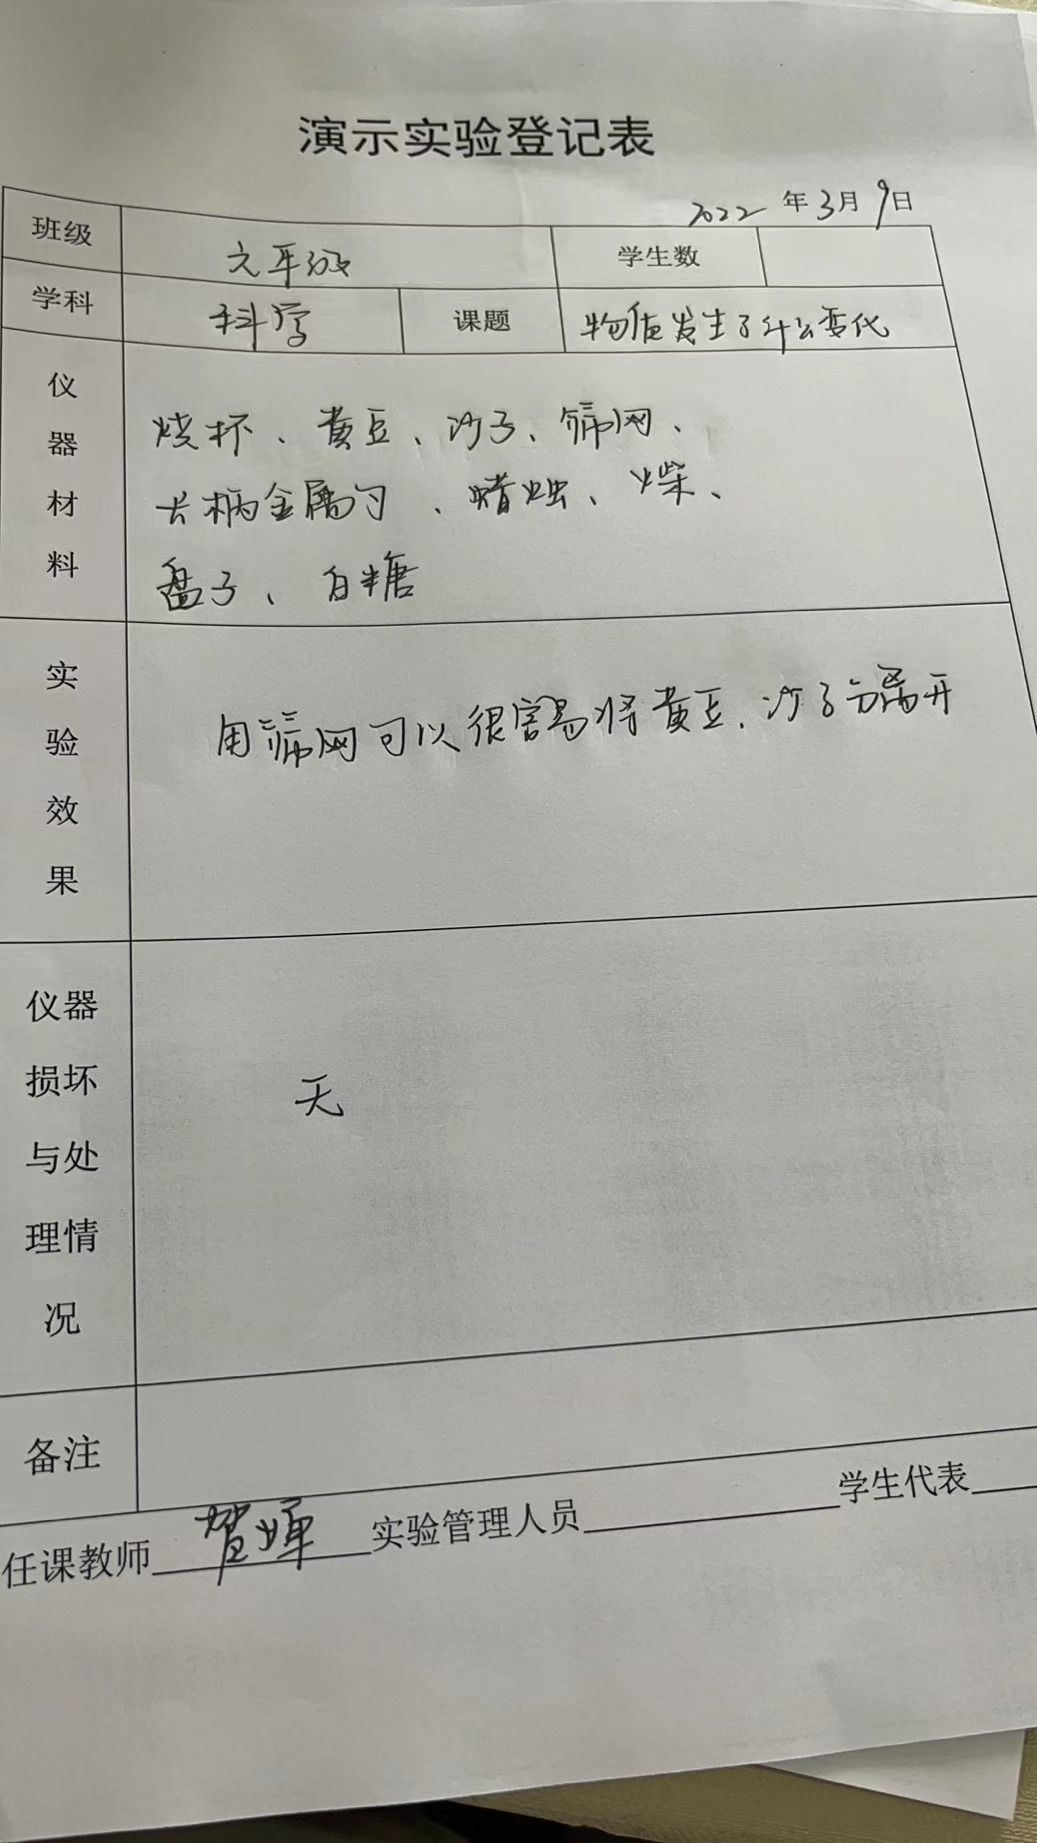 演示实验登记表
2022 年 3月 9日
班级 六年级 学生数
学科 科学 课题 物质发生了什么变化
仪器材料
烧杯、黄豆、沙子、筛网、
长柄金属勺、蜡烛、火柴、
盘子、白糖
实验效果
用筛网可以很容易将黄豆、沙子分离开
仪器损坏与处理情况
无
备注
任课教师 实验管理人员 学生代表